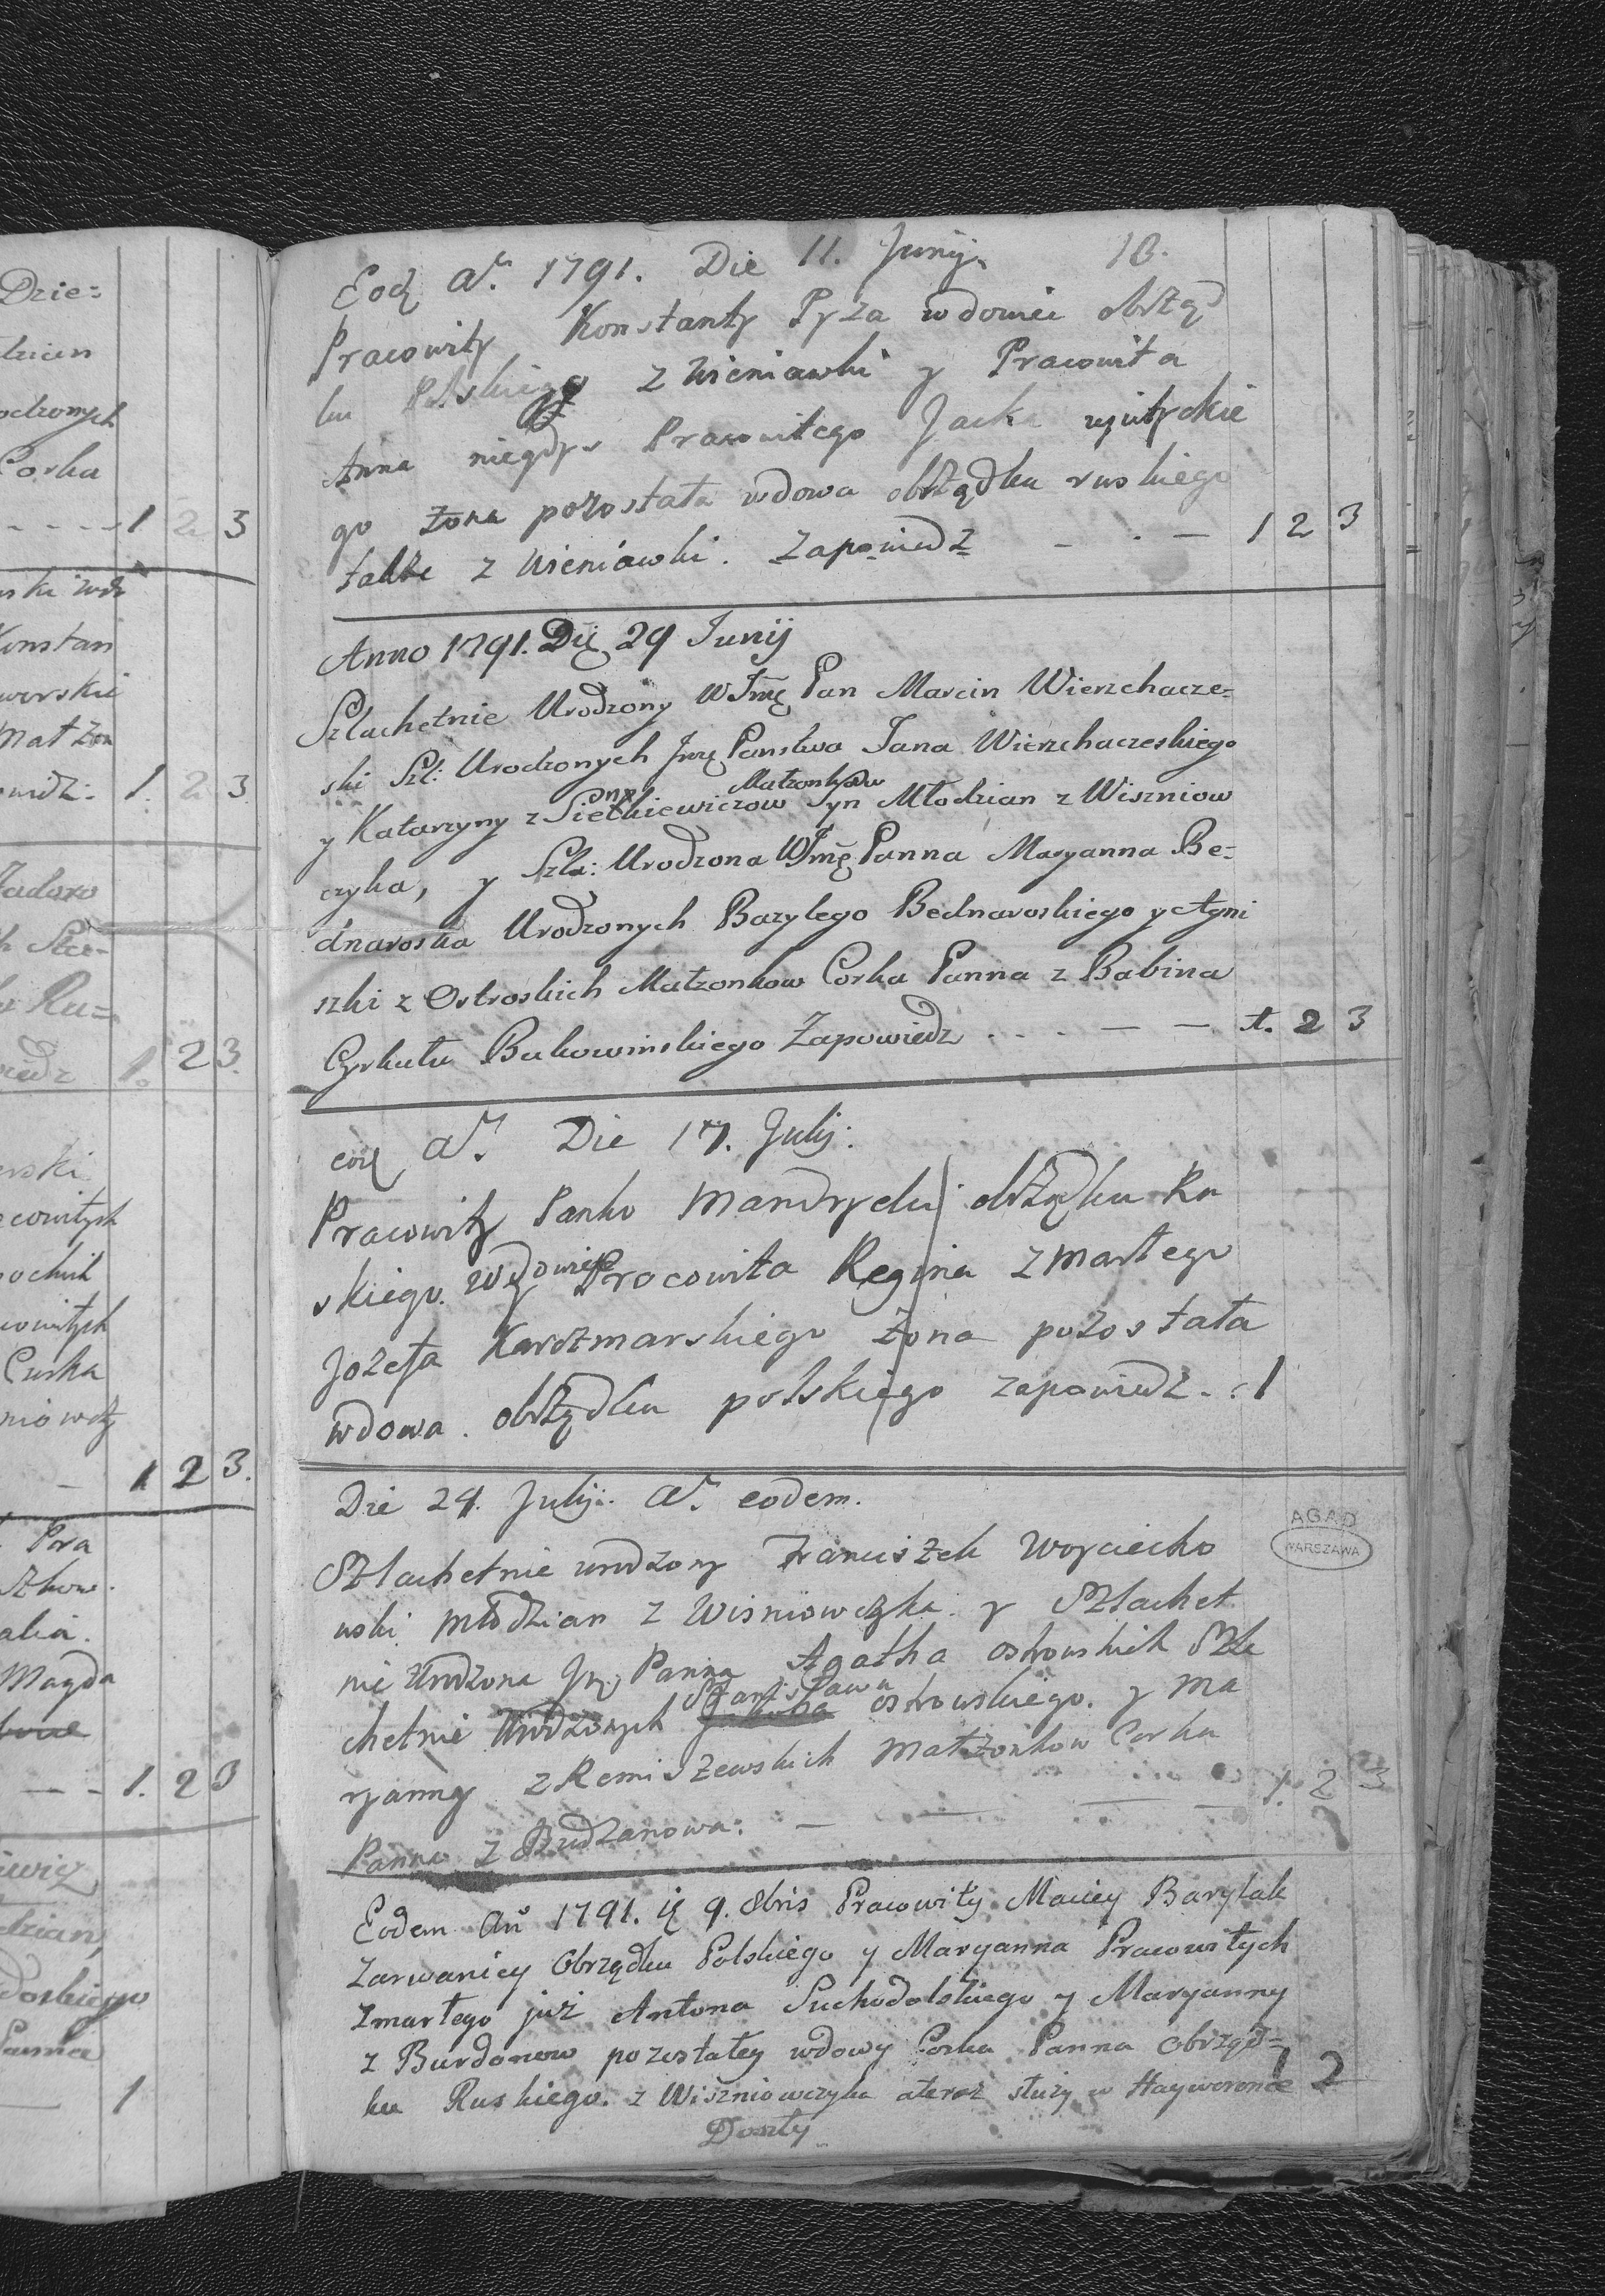 Dzie=
odzonych
Corka
1 2 3
Konstan
1. 2 3
1. 2 3.
1 2 3.
Pra
Magda
1. 2 3
Panna
1
Eod A° 1791. Die 11. Junij. 18.
Pracowity Konstanty Pyza wdowiec obrżą
ku Polskiego z Wieniawki y Pracowita
Anna niegdys Pracowitego Jacka
go żona pozostała wdowa obrżądku ruskiego
także z Wieniawki. Zapowiedż - . - 1 2 3
Anno 1791. Die 29 Junij
Szlachetnie Urodzony WJmć Pan Marcin Wierzchacze=
ski Szl: Urodzonych Jmć Panstwa Jana Wierzchaczeskiego
Małzonkow
y Katarzyny z Sietkiewiczow Syn Młodzian z Wiszniow
czyka, y Szla: Urodzona WJmć Panna Maryanna Be=
dnaroska Urodzonych Bazylego Bednaroskiego y Agni
szki z Ostroskich Małzonkow Corka Panna z Babina
Cyrkułu Bukowinskiego Zapowiedz . . . - - - 1. 2 3
eod A° Die 17. Julij:
Pracowity Panko Mandrycki obrżądku Ru
skiego. Wdowiec y Pracowita Regina zmarłego
Jozefa Karczmarskiego żona pozostała
wdowa. obrżądku polskiego zapowiedż . : 1
Die 24. Julij. A° eodem.
Szlachetnie urodzony Franciszek Woyciecho
wski młodzian z Wisniowczyka y Szlachet
nie Urodzona Jmć Panna Agatha ostrowskich Szla
Stanisława
chetnie Urodzonych Jakuba ostrowskiego. y Ma
ryanny z Remiszewskich małżonkow Corka
Panna z Budzanowa: - - - - 1. 2 3
AGAD
WARSZAWA
Eodem Ann 1791. d 9. 8bris Pracowity Maciey Barylak
Zarwanicy Obrządku Polskiego y Maryanna Pracowitych
zmarłego już Antona Suchodolskiego y Maryanny
z Burdonow pozostałey wdowy Corka Panna Obrząd=
ku Ruskiego. z Wiszniowczyka ateraz służy w Hayworonce 1 2
Doszły